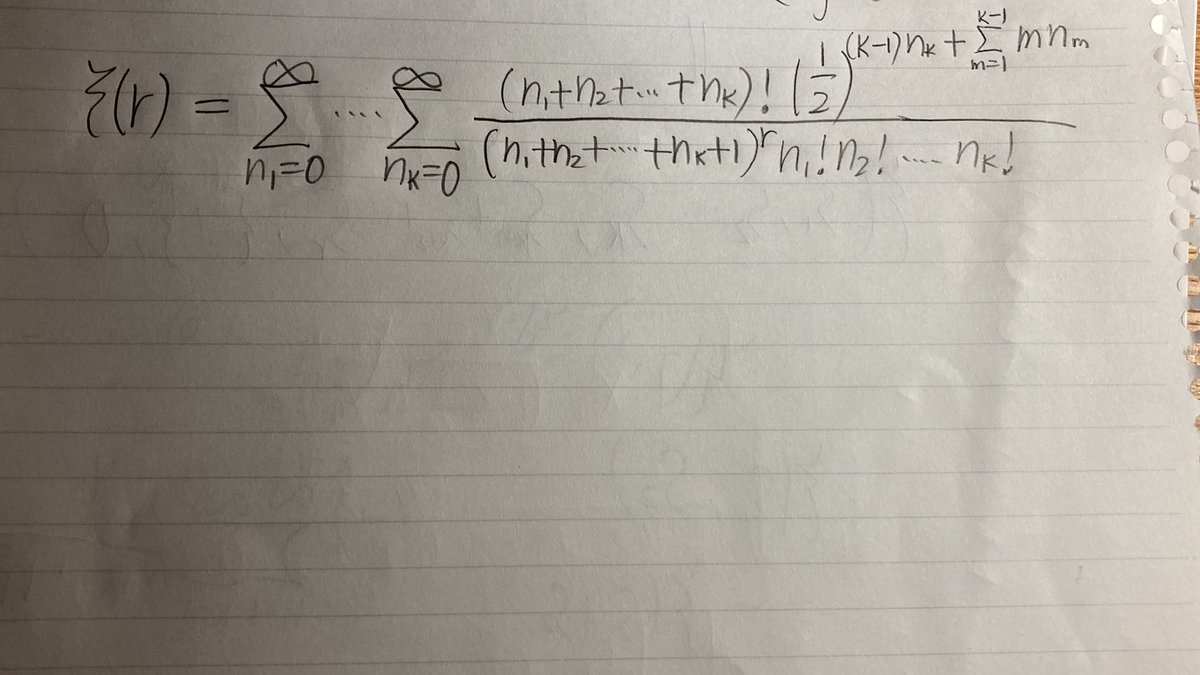 ξ(r) = ∑_{n₁=0}^{∞} ···· ∑_{n_K=0}^{∞} \frac{(n₁+n₂+···+n_K)! (\frac{1}{2})^{(K-1)n_K + ∑_{m=1}^{K-1} m n_m}}{(n₁+n₂+····+n_K+1)^r n₁! n₂! ···· n_K!}